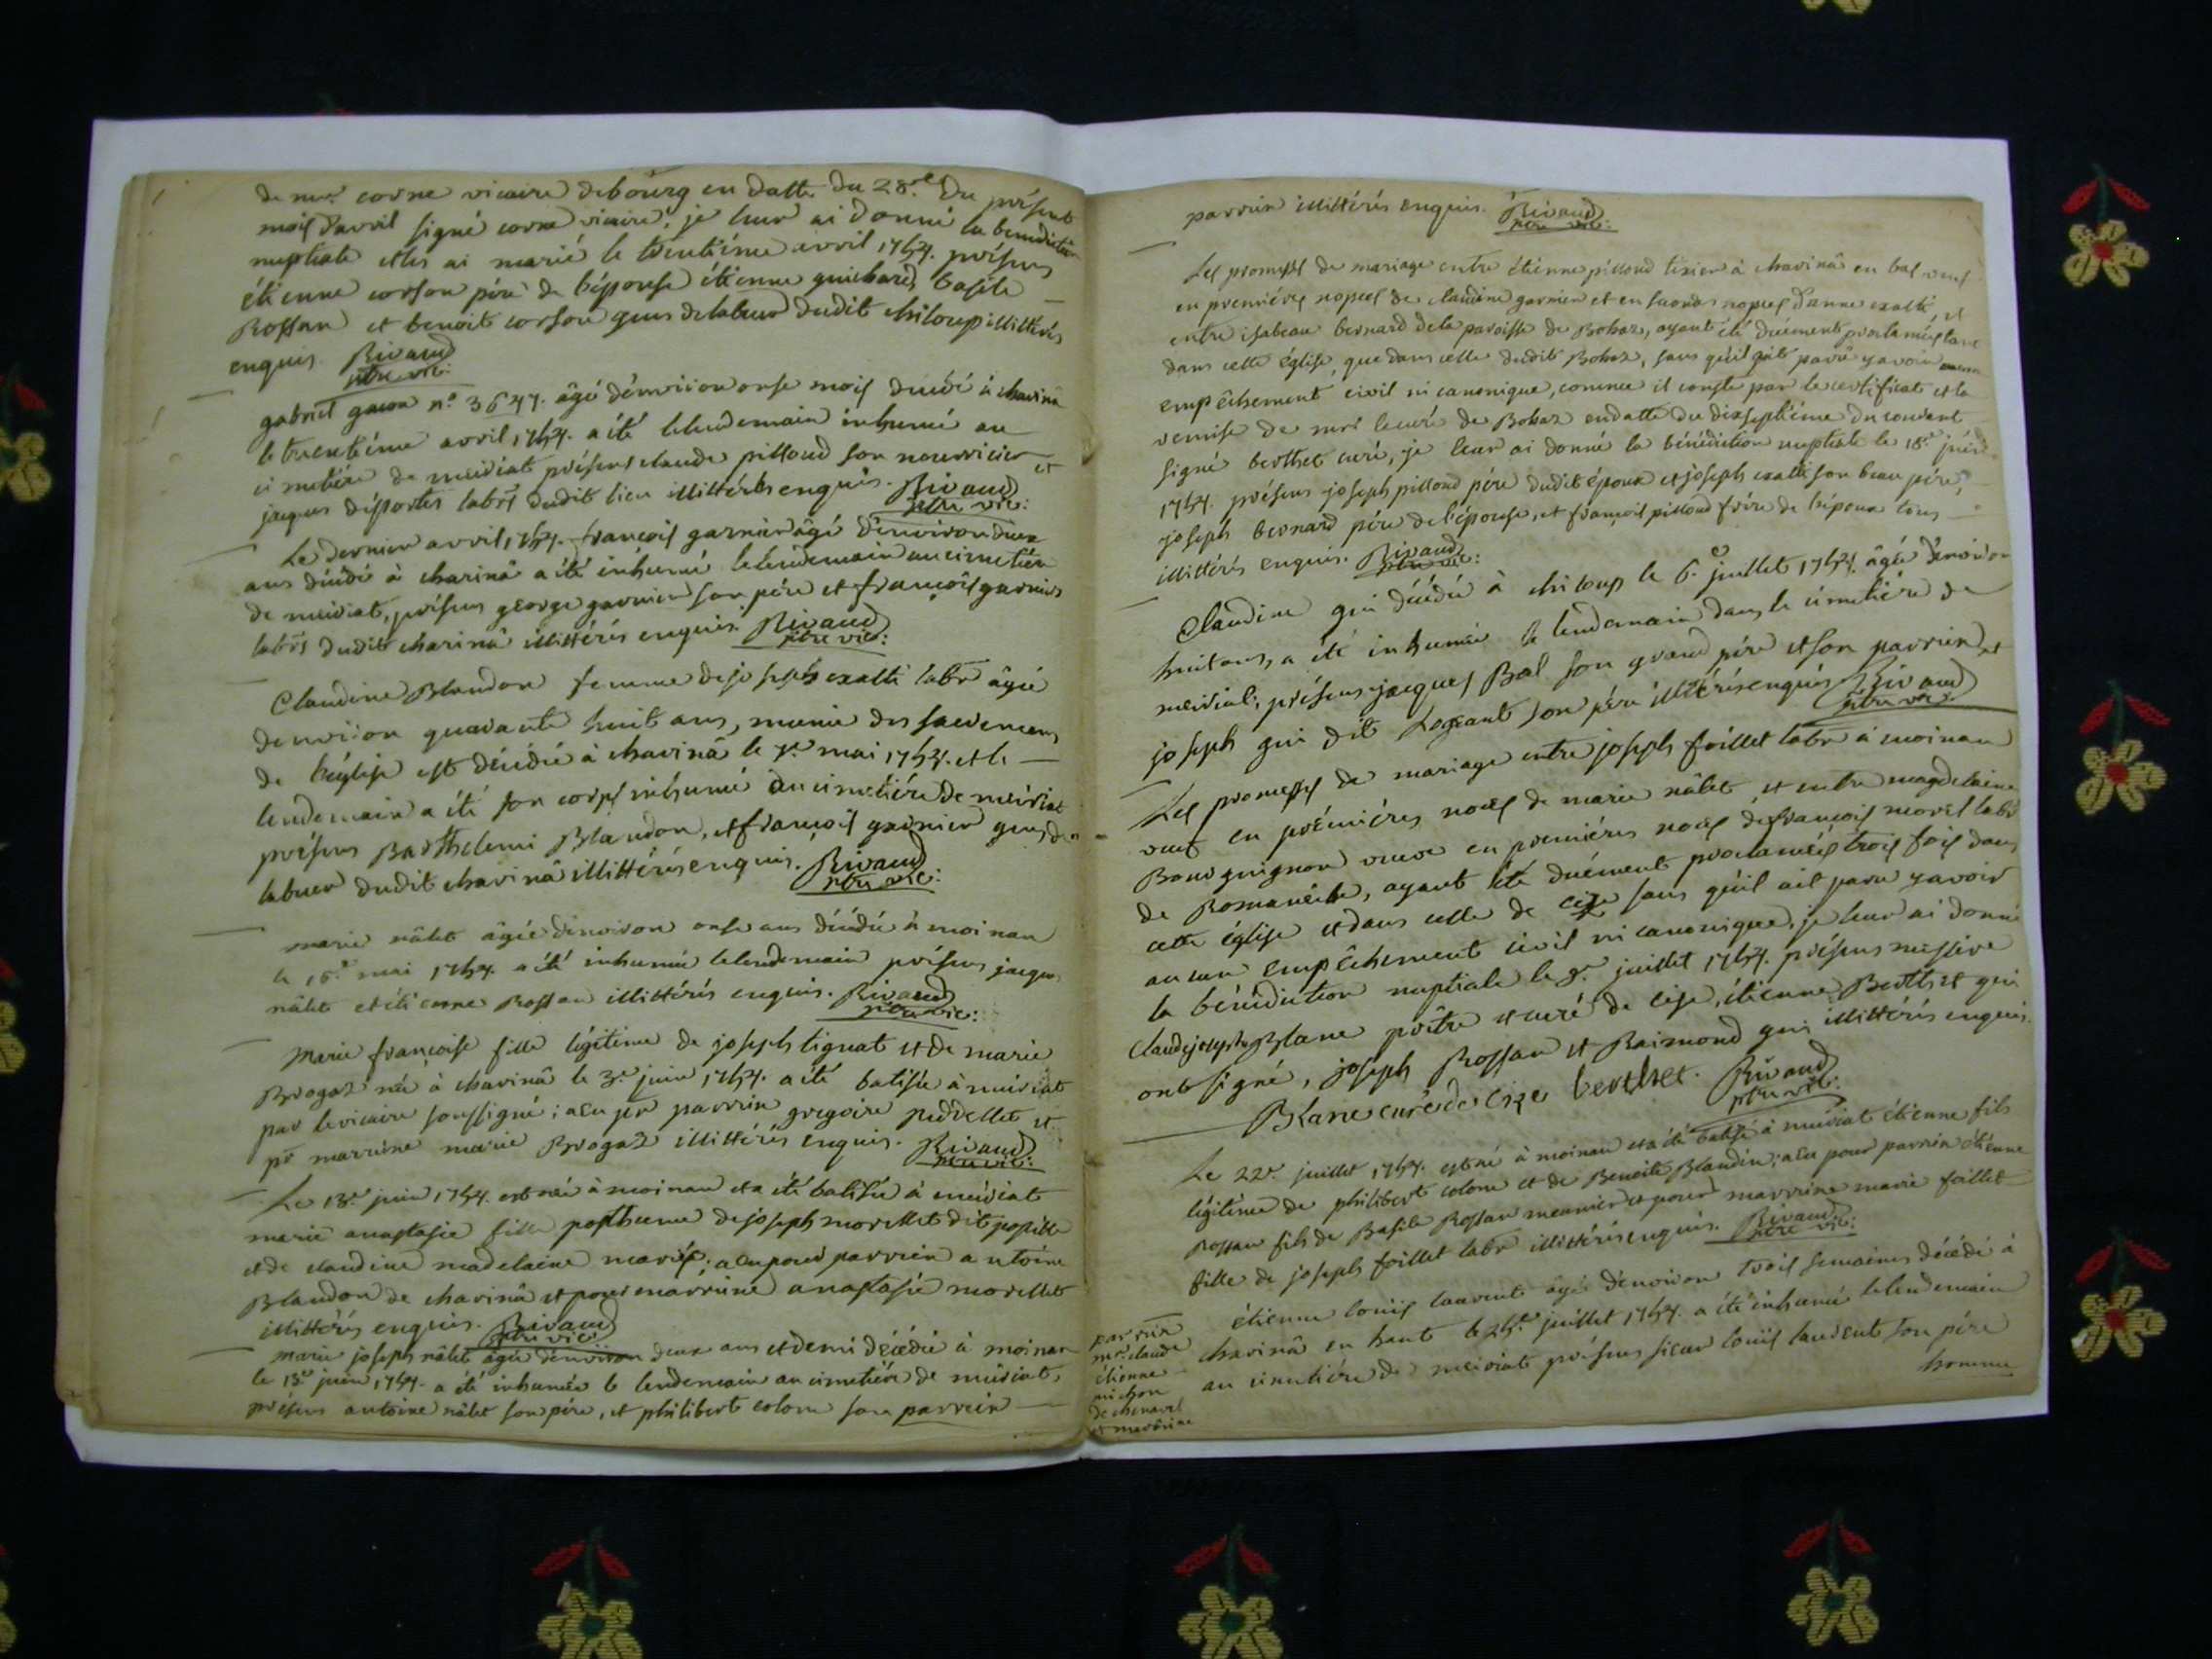 de mr corne vicaire de bourg en datte du 28e du présent
mois d'avril signé corne vicaire, je leur ai donné la benediction
nuptiale et les ai marié le trentiéme avril 1754. présens
étienne corson pére de l'épouse étienne guichard, basile
Rossan et benoit corson gens de labeur dudit chiloup illittérés
enquis. Rivaud
ptre vic:
gabriel gacon n° 3647. âgé d'environ onse mois décédé à chavinâ
le trentiéme avril 1754. a été le lendemain inhumé au
cimetiére de meiriat présens claude pilloud son nourricier et
jacques déportes labrs dudit lieu illittérés enquis. Rivaud
ptre vic:
Le dernier avril 1754. françois garnier âgé d'environ deux
ans décédé à charinâ a été inhumé le lendemain au cimetiére
de meiriat, présens george garnier son pére et françois garnier
labrs dudit charinâ illittérés enquis. Rivaud
ptre vic:
Claudine Blandon femme de joseph exalté labr âgée
d'environ quarante huit ans, munie des sacremens
de l'église est décédée à chavinâ le 7e mai 1754. et le
lendemain a été son corps inhumé au cimetiére de meiriat
présens Barthelemi Blandon, et françois garnier gens de
labeur dudit chavinâ illittérés enquis. Rivaud
ptre vic:
marie nâlet âgée d'environ onse ans décédée à moinan
le 16e mai 1754. a été inhumée le lendemain présens jacques
nâlet et étienne Rossan illittérés enquis. Rivaud
ptre vic:
Marie françoise fille légitime de joseph tignat et de marie
Brogaz née à chavinâ le 3e juin 1754. a été batisée à meiriat
par le vicaire soussigné; a eu pr parrein gregoire et
pr marreine marie Brogaz illittérés enquis. Rivaud
ptre vic:
Le 13e juin 1754. est née à moinan et a été batisée à meiriat
marie anastasie fille posthume de joseph morellet dit
et de claudine madelaine; a eu pour parrein antoine
Blandon de chavinâ et pour marreine anastasie morellet
illittérés enquis. Rivaud
ptre vic:
marie joseph nâlet âgée d'environ deux ans et demi décédée à moinan
le 13e juin 1754. a été inhumée le lendemain au cimetiére de meiriat,
présens antoine nâlet son pére, et philibert colom son parrein
parrein illittérés enquis. Rivaud
ptre vic:
Les promesses de mariage entre étienne pilloud tixier à chavinâ en bas veuf
en premiéres nopces de claudine garnier et en secondes nopces d'anne exalté, et
entre isabeau bernard de la paroisse de Bohas, ayant été duément proclamées tant
dans cette église, que dans celle dudit Bohas, sans qu'il ait paru y avoir aucun
empêchement civil ni canonique, comme il conste par le certificat et la
remise de mr le curé de Bohas en datte du dixseptiéme du courant
signé berthet curé, je leur ai donné la bénédiction nuptiale le 18e
1754. présens joseph pilloud pére dudit époux et joseph exalté son beau pére,
joseph bernard pére de l'épouse, et françois pilloud frére de l'époux tous
illittérés enquis. Rivaud
ptre vic:
Claudine gui décédée à chiloup le 6e juillet 1754. âgée d'environ
huit ans, a été inhumée le lendemain dans le cimetiére de
meiriat; présens jacques Bal son grand pére et son parrein, et
joseph gui dit son pére illittérés enquis. Rivaud
ptre vic:
Les promesses de mariage entre joseph foillet labr à moinan
veuf en premiéres noces de marie nâlet, et entre magdelaine
Bourguignon veuve en premiéres noces de françois morel labr
de Romanéche, ayant été duément proclamées trois fois dans
cette église et dans celle de cize sans qu'il ait paru y avoir
aucun empêchement civil ni canonique, je leur ai donné
la bénédiction nuptiale le 9e juillet 1754. présens messire
claude joseph Blanc prêtre et curé de cize, étienne Berthet qui
ont signé, joseph Rossan et Raimond gui illittérés enquis.
Blanc curé de cize berthet. Rivaud
ptre vic:
Le 22e juillet 1754. est né à moinan et a été batisé à meiriat étienne fils
légitime de philibert colom et de Benoite Blandin; a eu pour parrein étienne
Rossan fils de Basile Rossan meunier et pour marreine marie foillet
fille de joseph foillet labr illittérés enquis. Rivaud
ptre vic:
étienne louis laurent âgé d'environ trois semaines décédé à
chavinâ en haut le 25e juillet 1754. a été inhumé le lendemain
au cimetiére de meiriat présens sieur louis laurent son pére
homme
parrein
mr claude
étienne
michon
de chenavel
et marreine